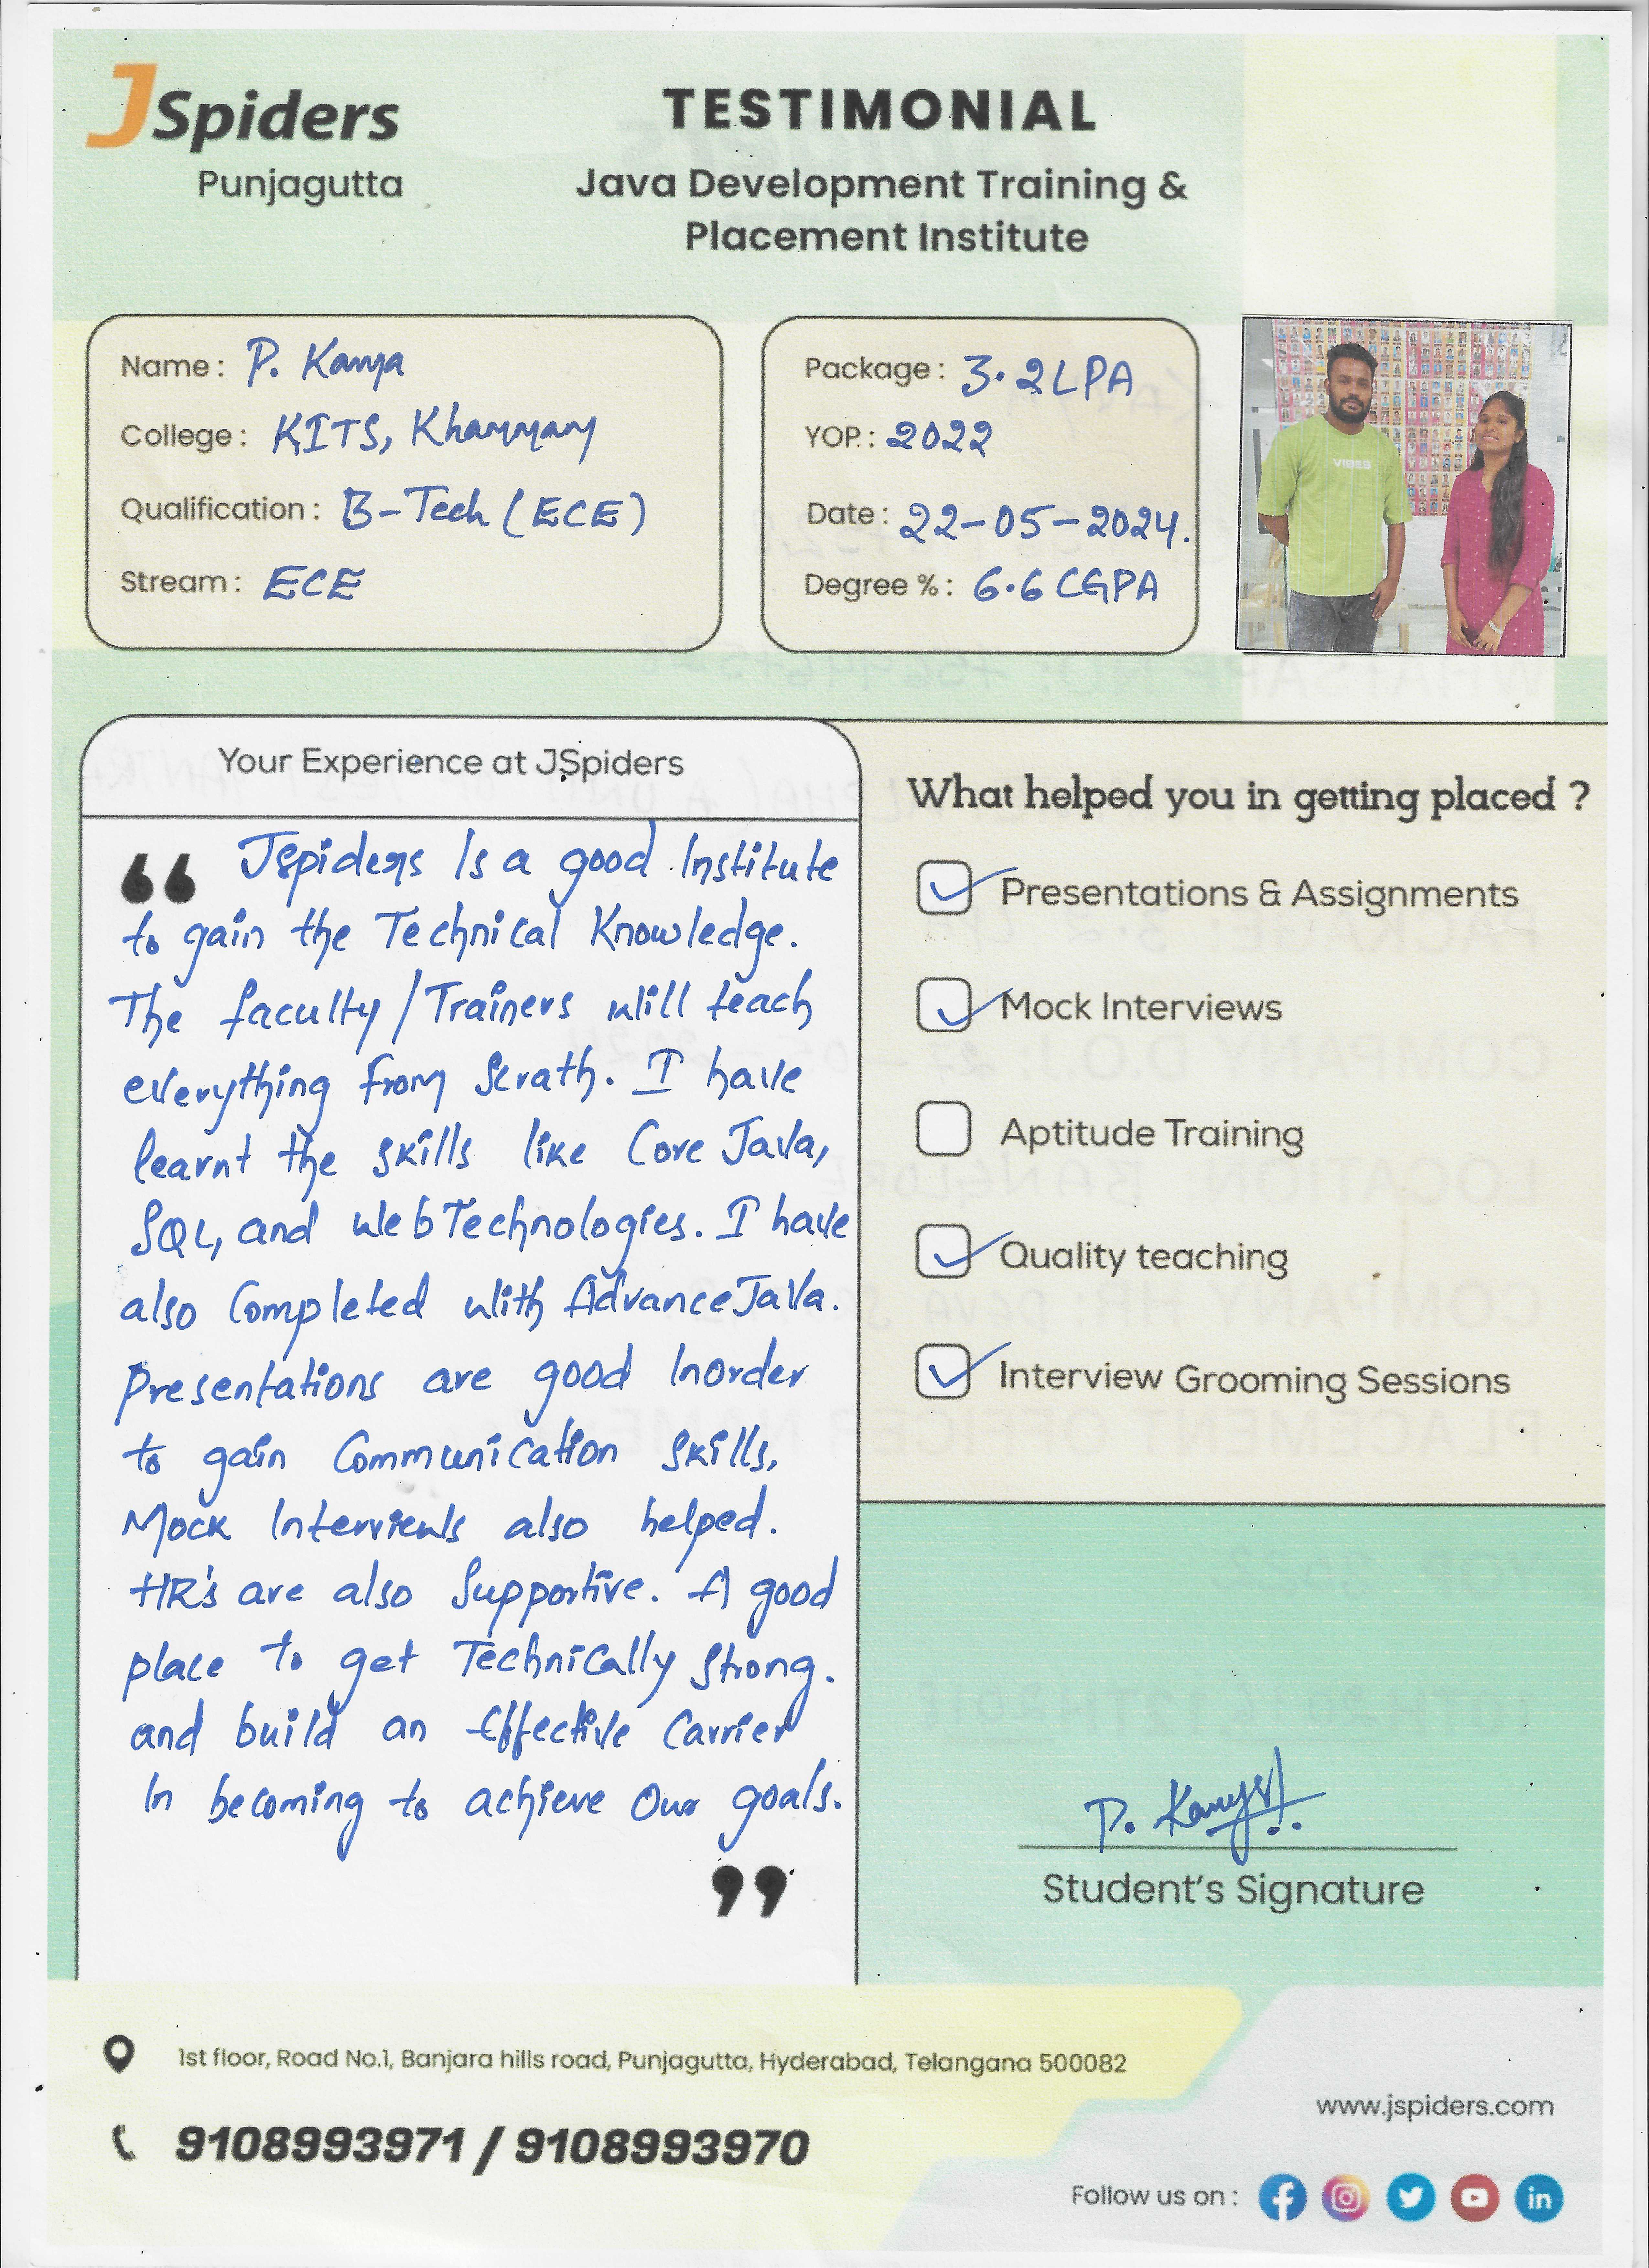 JSpiders
Punjagutta
TESTIMONIAL
Java Development Training &
Placement Institute
Name : P. Kanya
College : KITS, Khammam
Qualification : B-Tech (ECE)
Stream : ECE
Package : 3.2 LPA
YOP. : 2022
Date : 22-05-2024.
Degree % : 6.6 CGPA
VIBES
Your Experience at JSpiders
“ Jspiders Is a good Institute
to gain the Technical Knowledge.
The faculty/Trainers will teach
everything from Scrath. I have
learnt the skills like Core Java,
SQL, and Web Technologies. I have
also Completed with Advance Java.
Presentations are good Inorder
to gain Communication skills,
Mock Interviews also helped.
HR's are also Supportive. A good
place to get Technically Strong.
and build an Effective Carrier
In becoming to achieve Our goals.
”
What helped you in getting placed ?
Presentations & Assignments
Mock Interviews
Aptitude Training
Quality teaching
Interview Grooming Sessions
P. Kanya
Student's Signature
1st floor, Road No.1, Banjara hills road, Punjagutta, Hyderabad, Telangana 500082
9108993971 / 9108993970
www.jspiders.com
Follow us on :